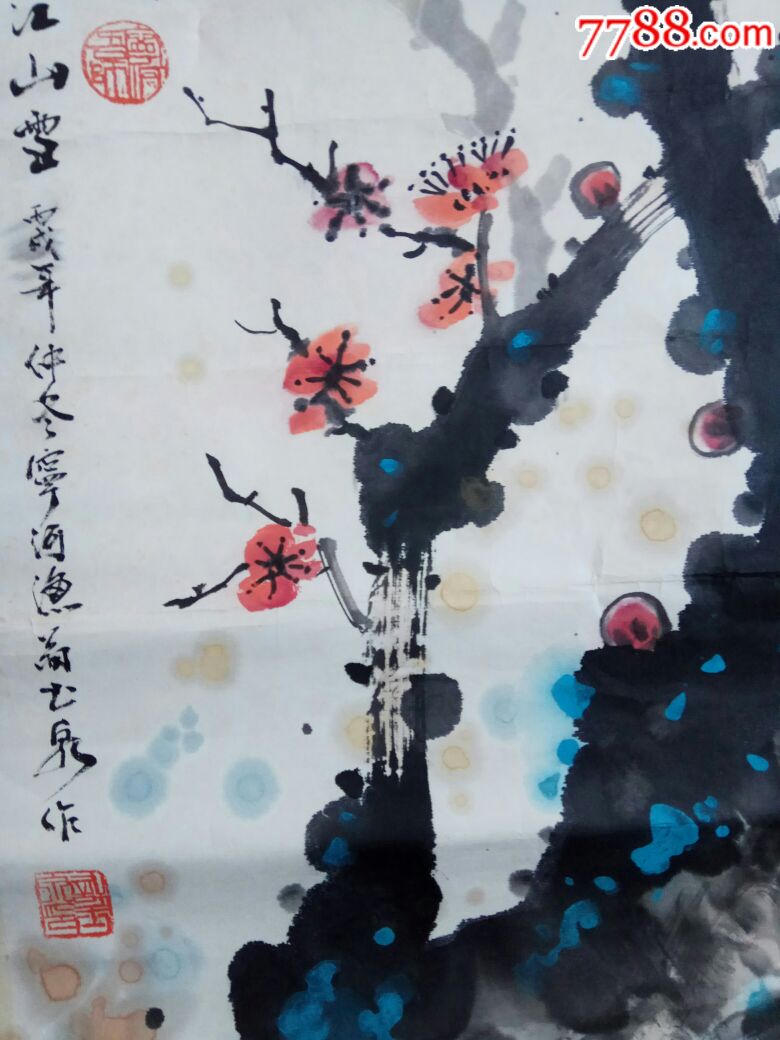 7788.com
江山雪
丙戌年仲冬寧河漁翁士泉作